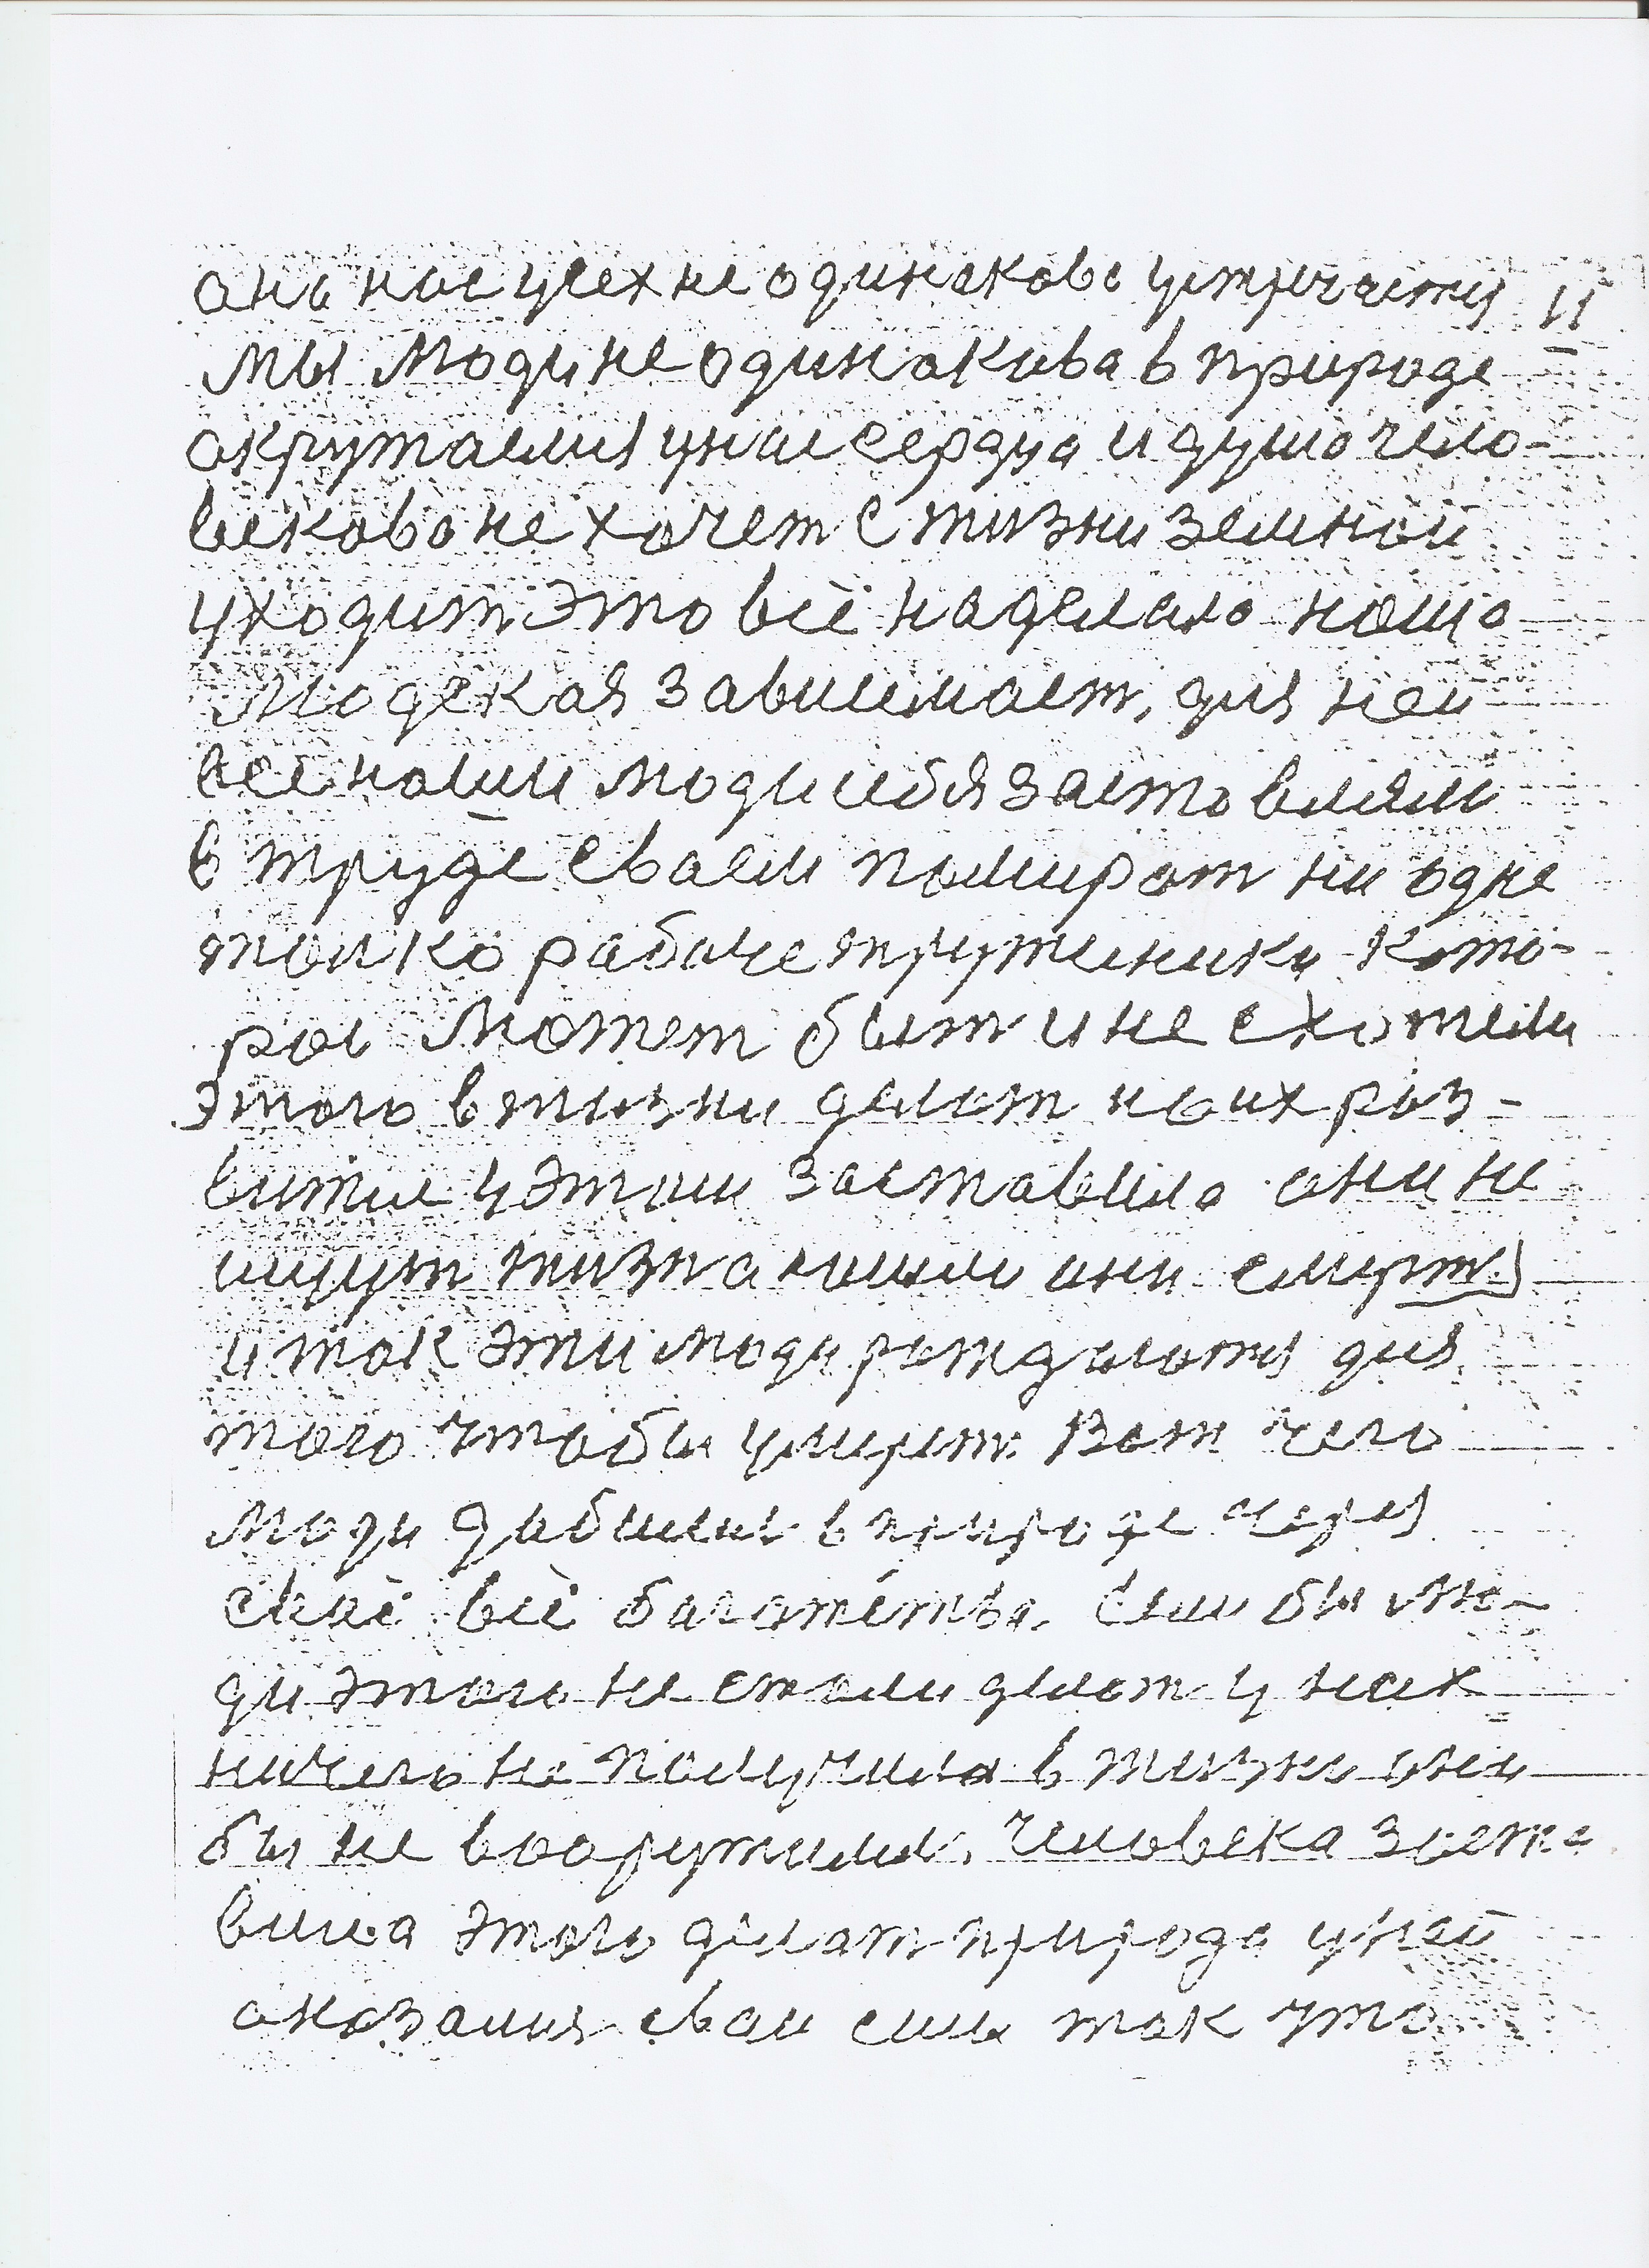 она нас усех не одинакова устричаится 11
мы люди не одинакива в природе
окружаемся у нас сердца и душа чело-
векова не хочет с жизни земной
уходит это всё наделала наша
людская зависимаст, для ней
все наши люди себя заставляли
в труде сваем помират ни одне
толко рабоче труженики кото-
рые может быт и не схотели
этого в жизни делат но их раз-
витие у этом заставило они не
ищут жизн а нашли они смерт
и так эти люди рождаются для
того чтобы умират. Вот чего
люди дабилис в природе через
своё всё багатство. Если бы лю-
ди этого не стали делат у них
ничего не получилос в жизни они
бы не вооружилис, человека заста
вила этого делат природа у ней
оказалися сваи силы так что